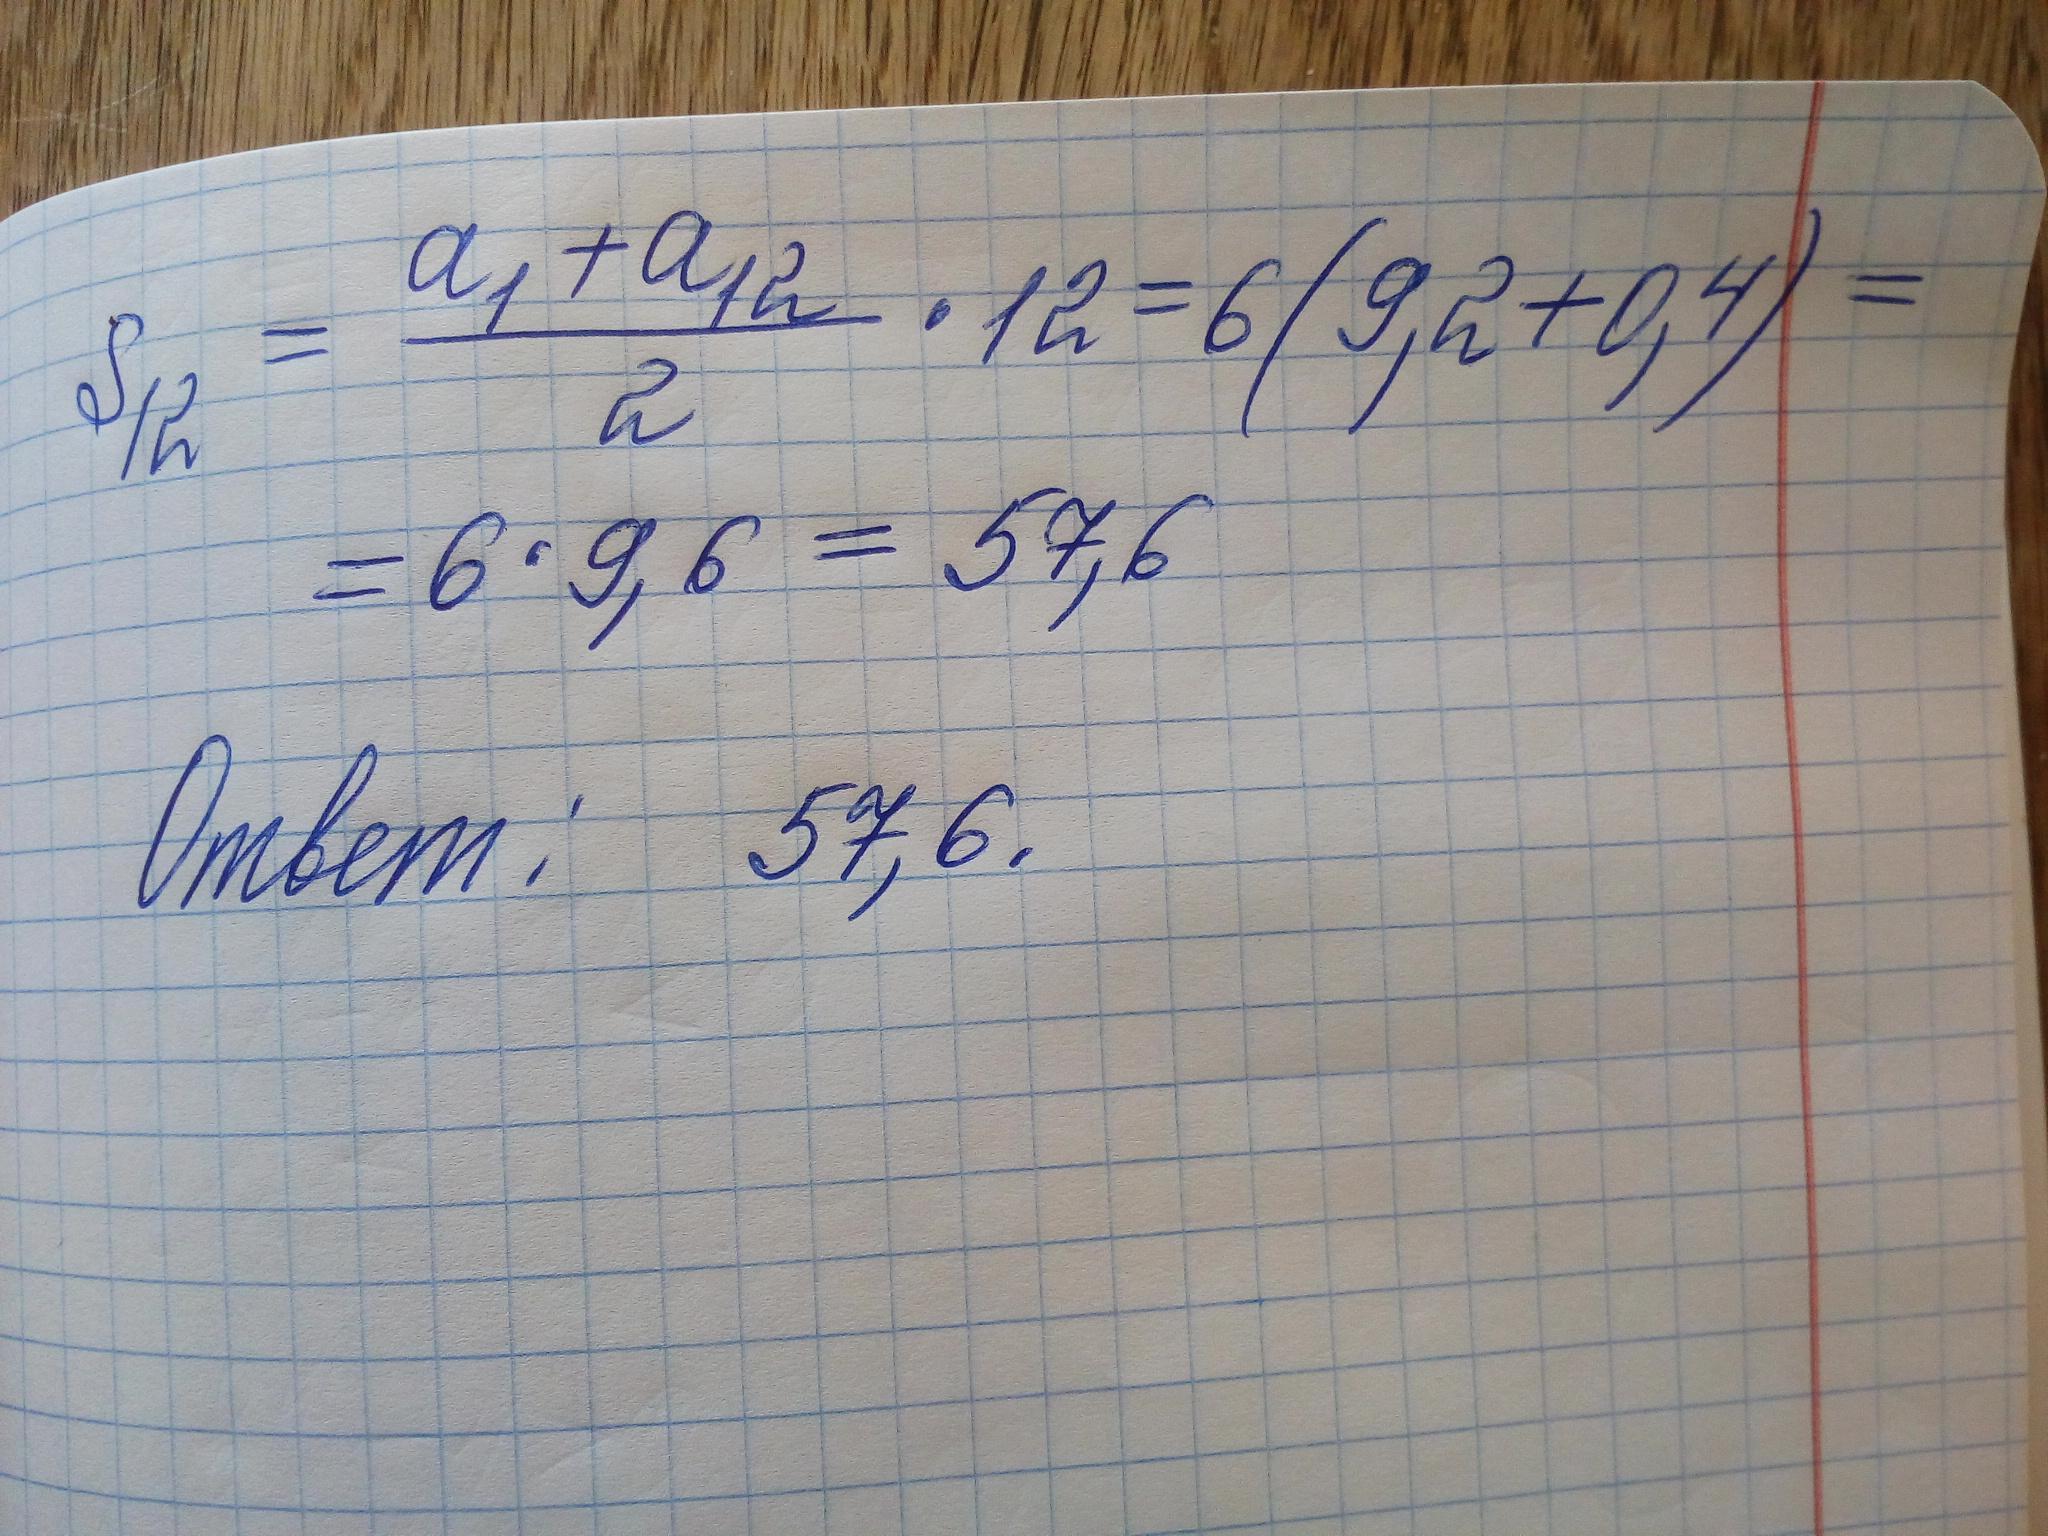 S₁₂ = (a₁ + a₁₂)/2 · 12 = 6(9,2 + 0,4) =
= 6 · 9,6 = 57,6
Ответ: 57,6.